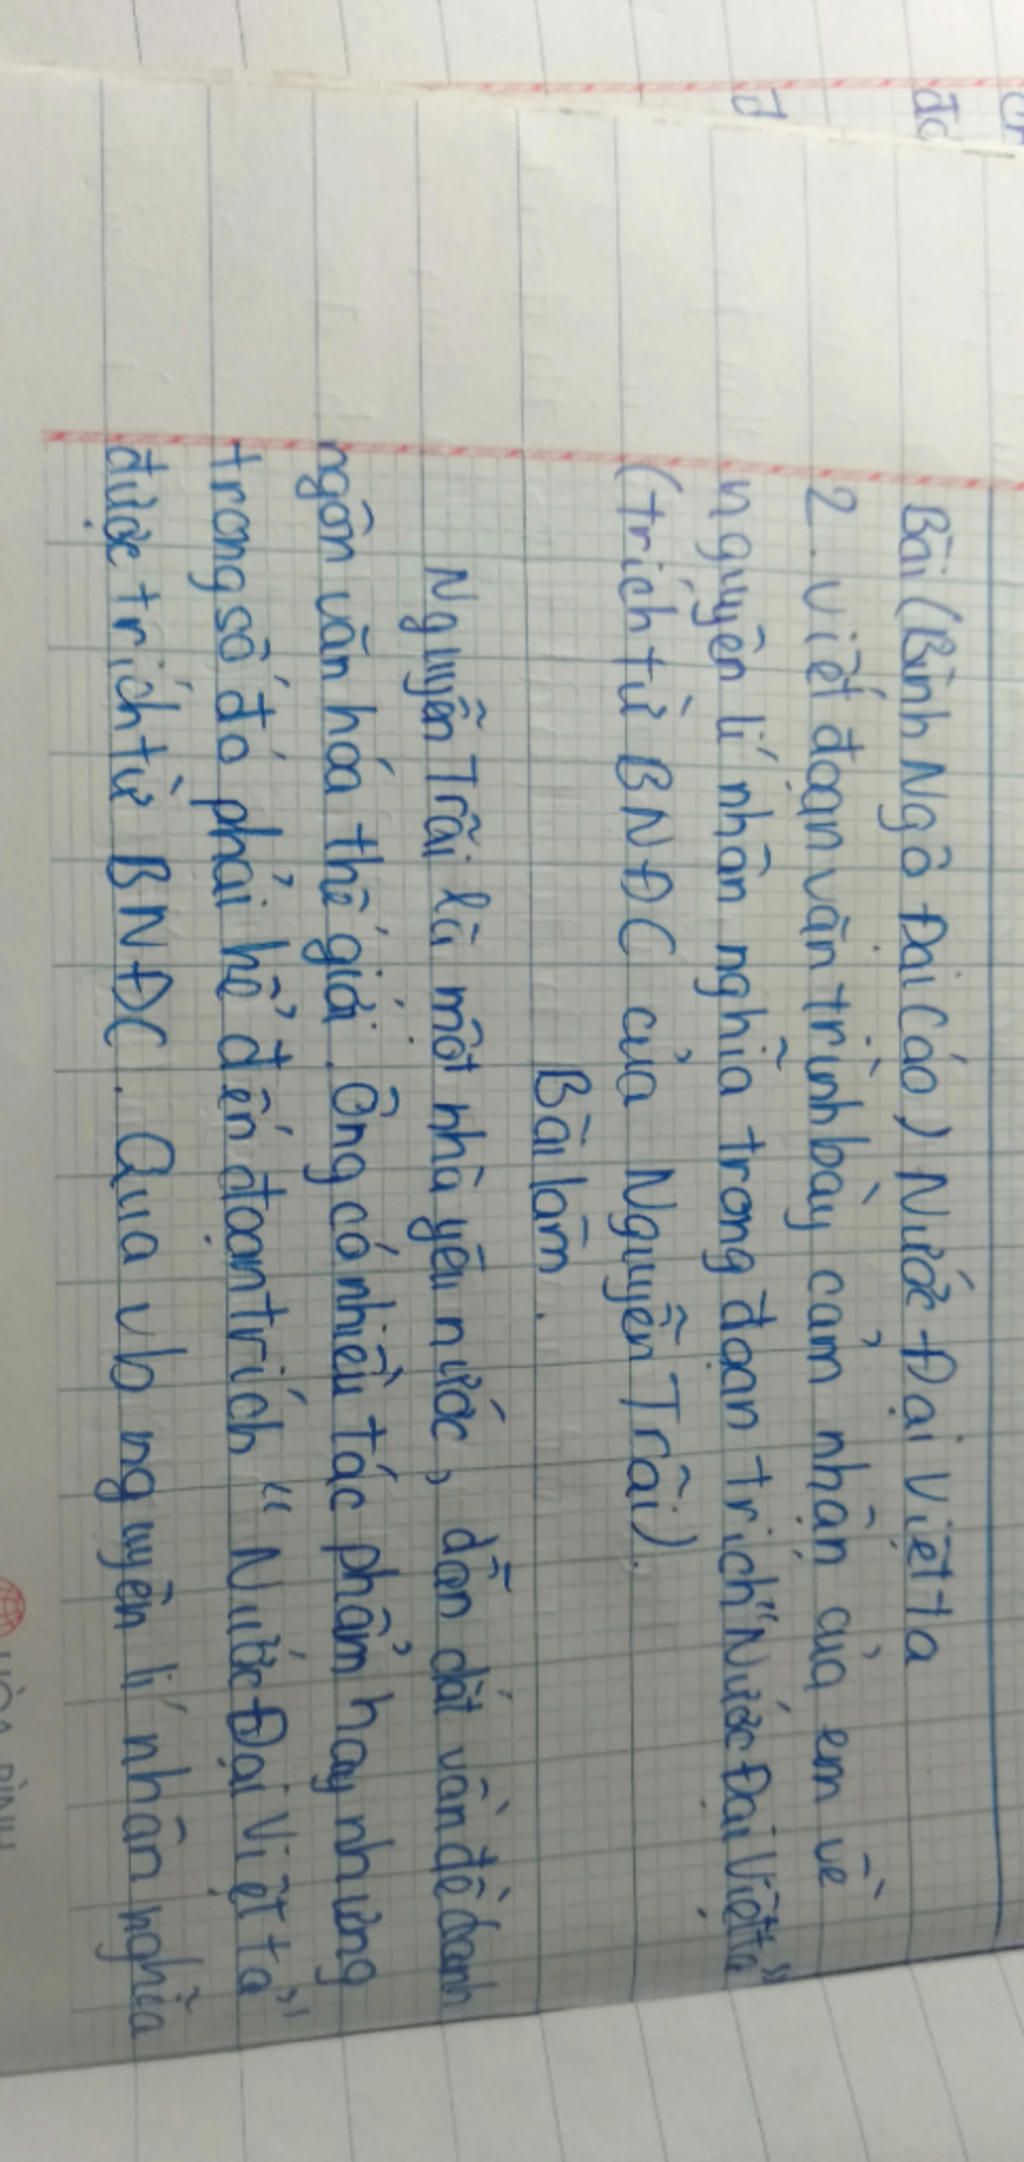 Bài (Bình Ngô Đại Cáo) Nước Đại Việt ta
2. Viết đoạn văn trình bày cảm nhận của em về
nguyên lí nhân nghĩa trong đoạn trích "Nước Đại Việt ta"
(trích từ BNĐC của Nguyễn Trãi).
Bài làm.
Nguyễn Trãi là một nhà yêu nước, dẫn dắt vấn đề danh
ngôn văn hóa thế giới. Ông có nhiều tác phẩm hay nhưng
trong số đó phải kể đến đoạn trích "Nước Đại Việt ta"
được trích từ BNĐC. Qua vb nguyên lí nhân nghĩa